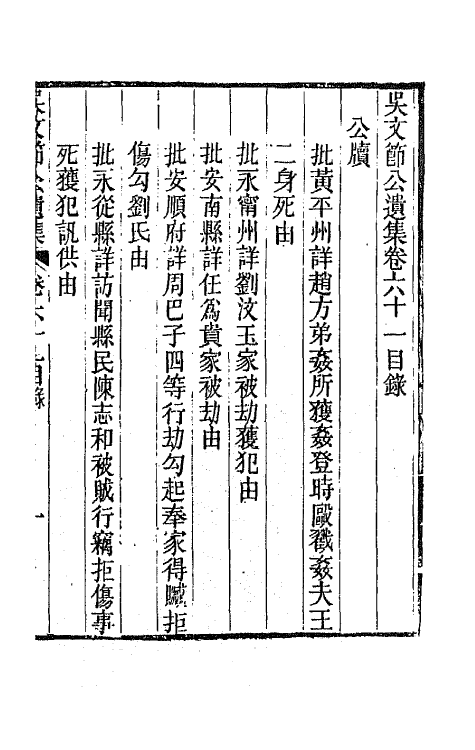 吳文節公遺集卷六十一目錄
公牘
批黃平州詳趙方弟姦所獲姦登時毆戳姦夫王
二身死由
批永甯州詳劉汶玉家被劫獲犯由
批安南縣詳任爲貴家被劫由
批安順府詳周巴子四等行劫勾起奉家得贓拒
傷勾劉氏由
批永從縣詳訪聞縣民陳志和被賊行竊拒傷事
死獲犯訊供由
吳文節公遺集 卷六十一目錄 一